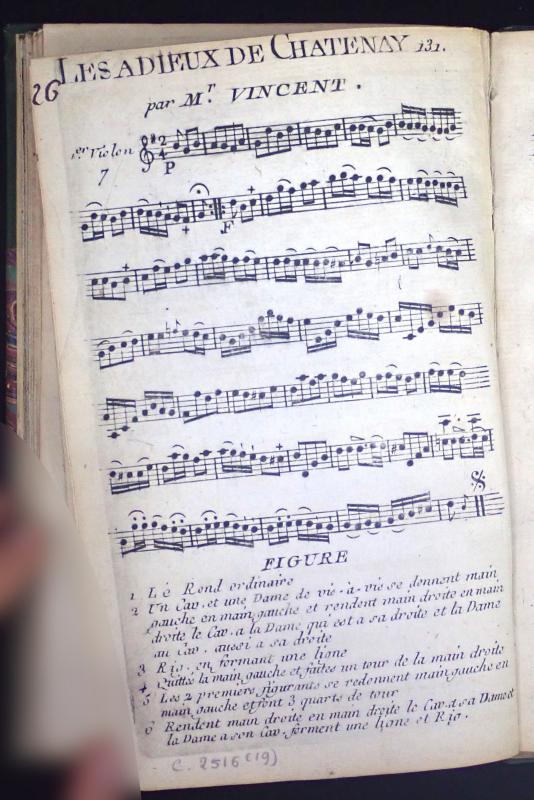 LES ADIEUX DE CHATENAY 131.
26
par Mr. VINCENT.
1er Violon
7
2
4
P
F
FIGURE
1 Le Rond ordinaire
2 Un Cav. et une Dame de vis-à-vis se donnent main
gauche en main gauche et rendent main droite en main
droite le Cav. a la Dame qui est a sa droite et la Dame
au Cav. aussi a sa droite
3 Rig. en formant une ligne
4 Quittés la main gauche et faites un tour de la main droite
5 Les 2 premiers figurants se redonnent main gauche en
main gauche et font 3 quarts de tour
6 Rendent main droite en main droite le Cav. a sa Dame et
la Dame a son Cav. forment une ligne et Rig.
C. 2516 (19)